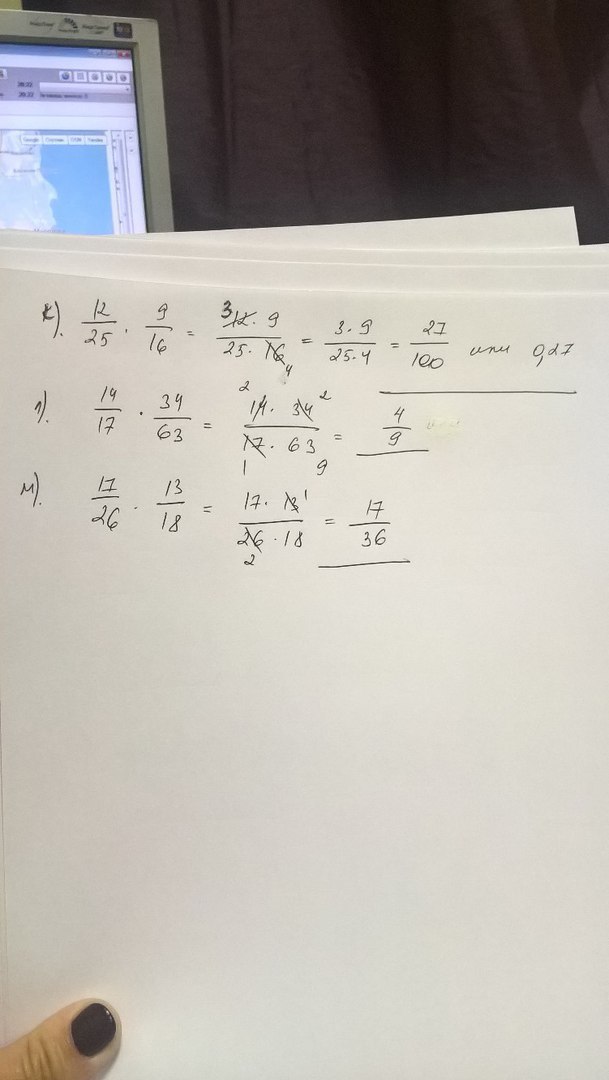 20:22
20:22
к). 12/25 · 9/16 = 3 12 · 9 / 25 · 16 4 = 3 · 9 / 25 · 4 = 27/100 или 0,27
л). 14/17 · 34/63 = 2 14 · 34 2 / 1 17 · 63 9 = 4/9
м). 17/26 · 13/18 = 17 · 13 1 / 26 2 · 18 = 17/36